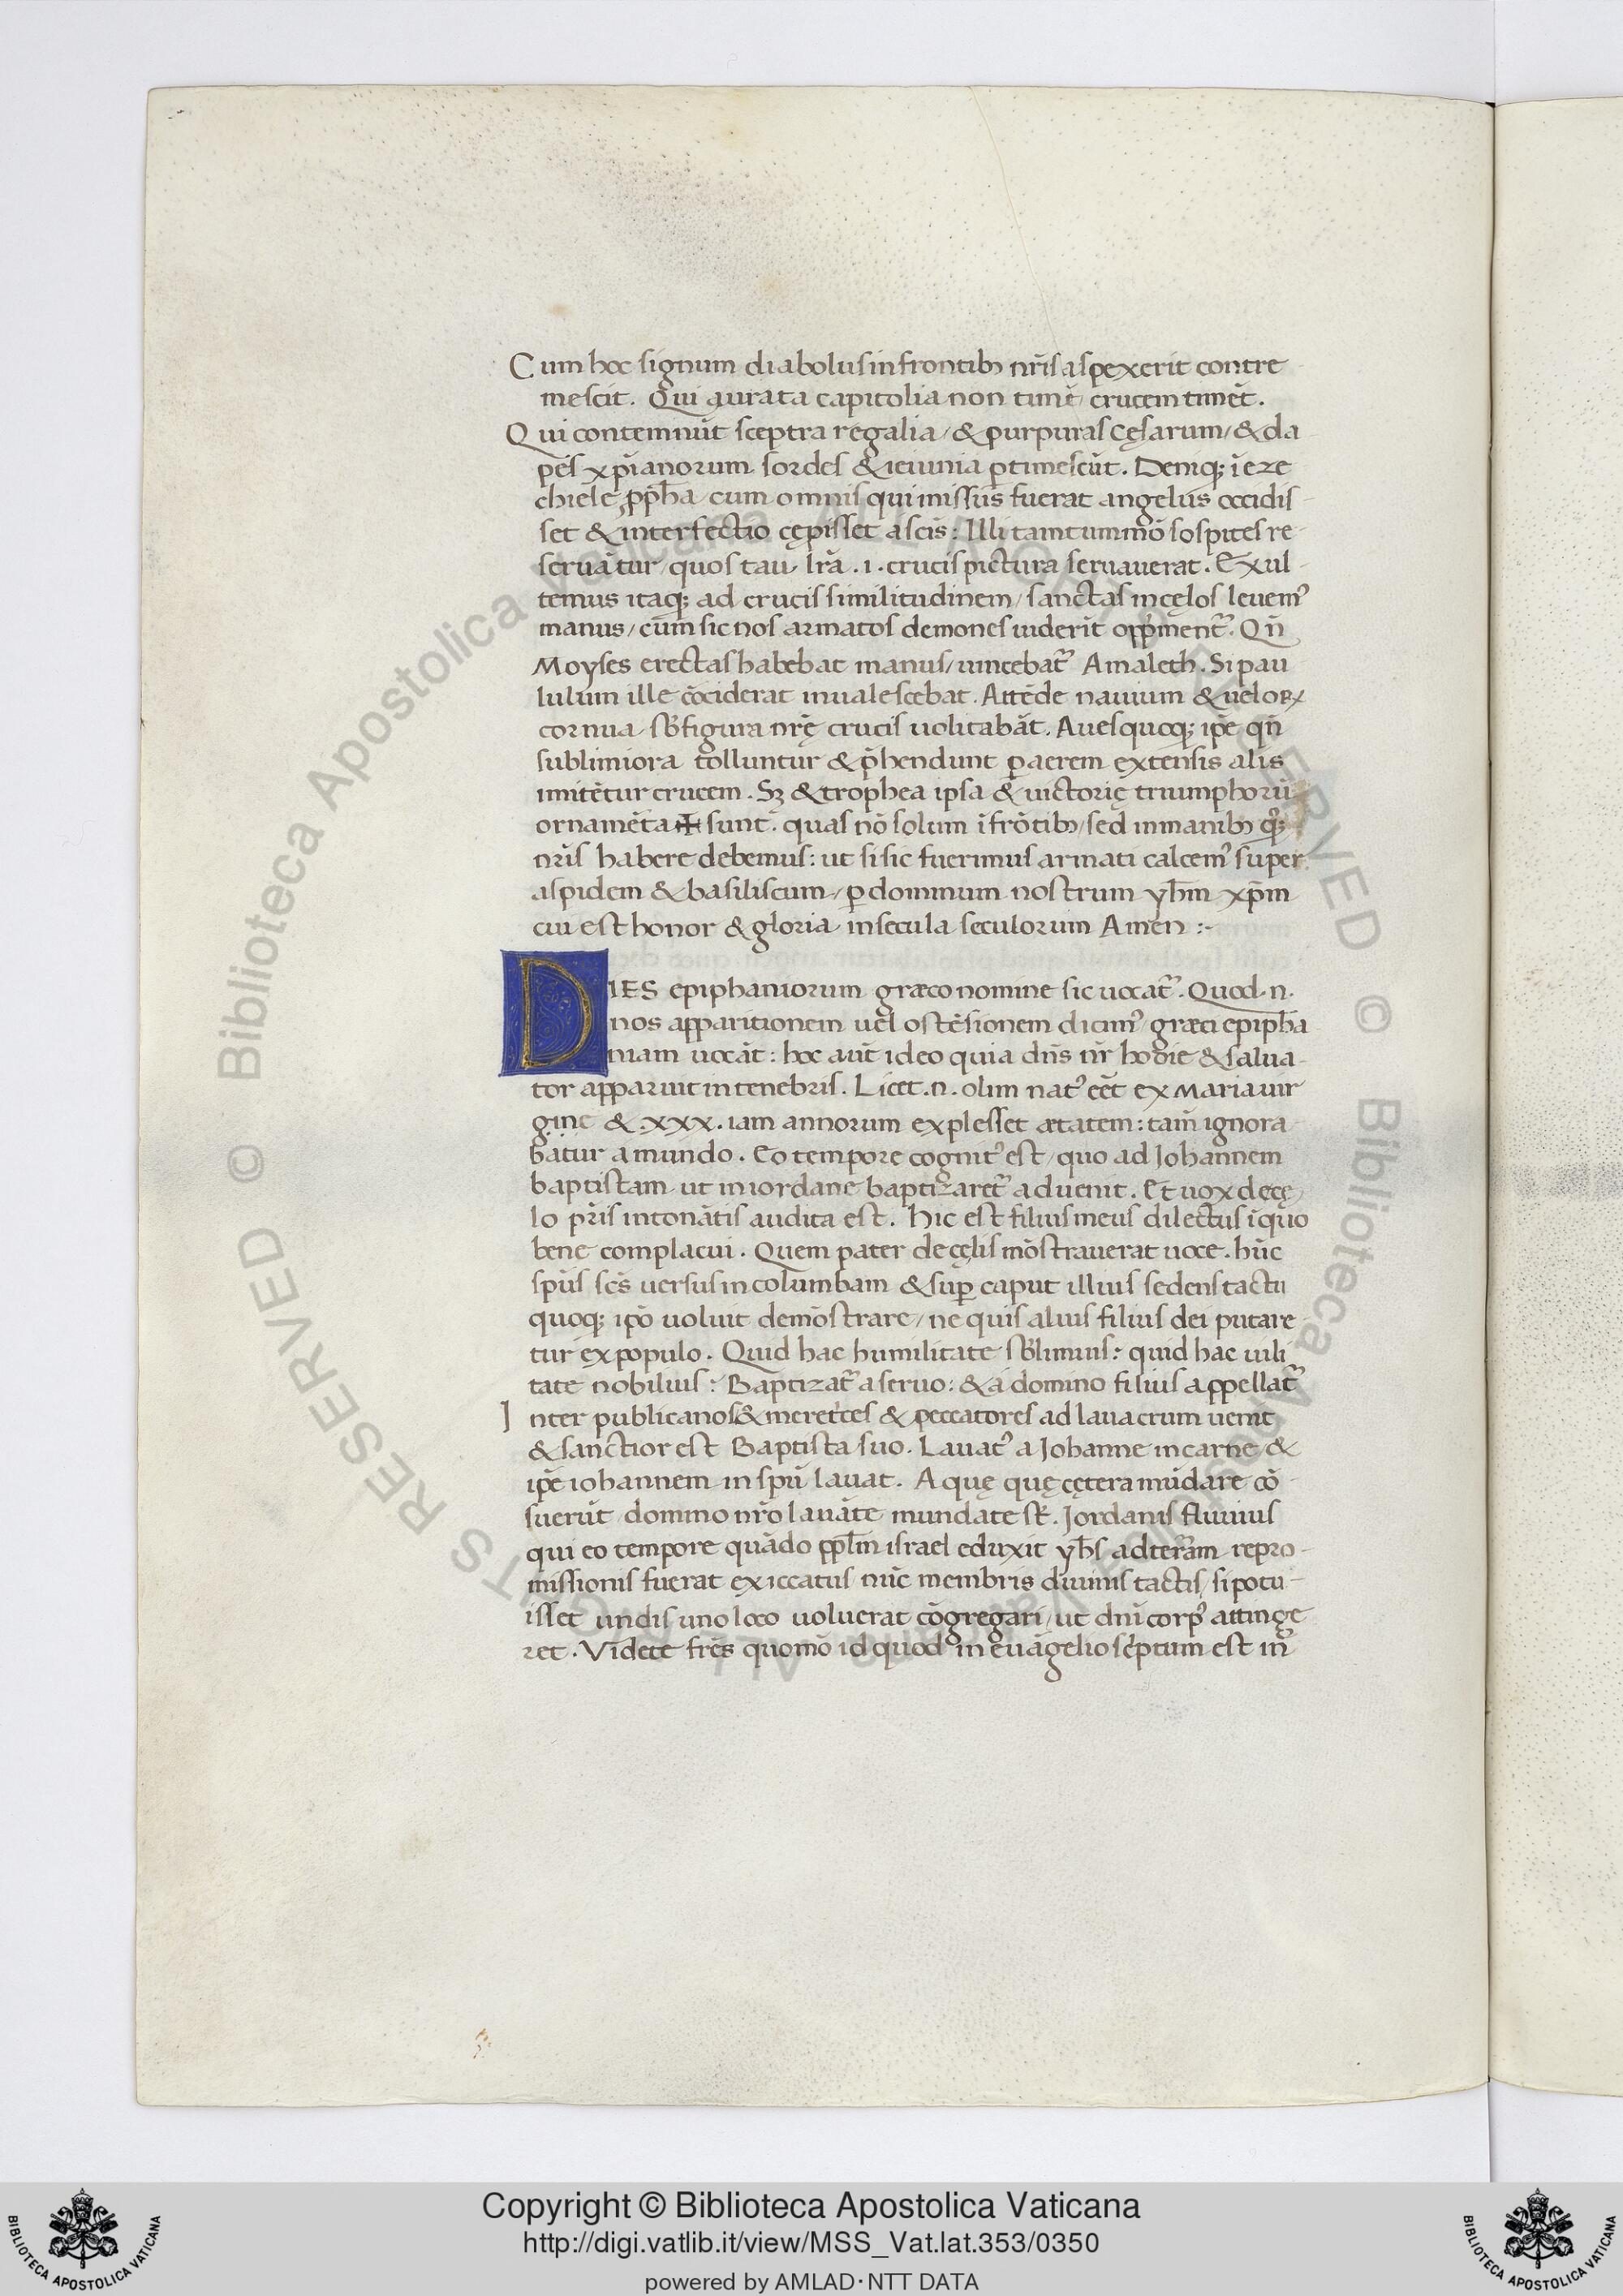 Cum hoc signum diabolus in frontibꝫ nr̄is aspexerit contre
mescit. Qui aurata capitolia non timēt, crucem timēt.
Qui contemnūt sceptra regalia, & purpuras cęsarum, & da
pes xp̄ianorum sordes & ieiunia ꝑtimescūt. Deniqꝫ ī eze
chiele ꝓph̄a cum omnis qui missus fuerat angelus occidis
set & interfectio cępisset a sc̄is: Illi tamtummō sospites re
seruātur, quos tau lr̄a .i. crucis pictura seruauerat. Exul
temus itaqꝫ ad crucis similitudinem, sanctas in cęlos leuemꝰ
manus, cum sic nos armatos demones uiderīt opp̄mentᷣ. Qn̄
Moyses erectas habebat manus, uincebatᷣ Amalech. Si pau
lulum ille cōciderat inualescebat. Attēde nauium & ueloꝝ
cornua sb̄ figura nr̄ę crucis uolitabāt. Aues quoqꝫ ip̄e qn̄
sublimiora tolluntur & p̄hendunt ꝑ aerem extensis alis
imitētur crucem. Sꝫ & trophea ipsa & uictorię triumphorū
ornamēta ✠ sunt. quas nō solum ī frōtibꝫ, sed in manibꝫ qꝫ
nr̄is habere debemus: ut si sic fuerimus armati calcemꝰ super
aspidem & basiliscum, ꝑ dominum nostrum yhm̄ xp̄m
cui est honor & gloria in secula seculorum Amen :-
DIES epiphaniorum græco nomine sic uocatᷣ. Quod .n.
nos apparitionem uel ostēsionem dicimꝰ græci epiph̄a
niam uocāt: hoc aut̄ ideo quia dn̄s nr̄ hodie & salua
tor apparuit in tenebris. Licet .n. olim natꝰ eēt ex Maria uir
gine & .xxx. iam annorum explesset ætatem: tam̄ ignora
batur a mundo. Eo tempore cognitꝰ est, quo ad Johannem
baptistam ut in iordane baptizaretᷣ aduenit. Et uox de cę
lo pr̄is intonātis audita est. Hic est filius meus dilectus ī quo
bene complacui. Quem pater de cęlis mōstrauerat uoce. hūc
sp̄us sc̄s uersus in columbam & suꝑ caput illius sedens tactu
quoqꝫ ip̄o uoluit demōstrare, ne quis alius filius dei putare
tur ex populo. Quid hac humilitate sb̄limius? quid hac uili
tate nobilius? Baptizatᷣ a seruo: & a domino filius appellatᷣ
Inter publicanos & meretrices & peccatores ad lauacrum uenit
& sanctior est Baptista suo. Lauatꝰ a Johanne in carne, &
ip̄e iohannem in spū lauat. Aquę quę cętera mūdare cō
suerūt domino nr̄o lauāte mundate st̄. Jordanis fluuius
qui eo tempore quādo ppl̄m israel eduxit yhs̄ ad terr̄am repro
missionis fuerat exiccatus nūc membris diuinis tactis, si potu
isset undis uno loco uoluerat cōgregari, ut dn̄i corpꝰ attinge
ret. Videte fr̄es quomō id quod in euāgelio scp̄tum est inᷣ
Copyright © Biblioteca Apostolica Vaticana
http://digi.vatlib.it/view/MSS_Vat.lat.353/0350
powered by AMLAD·NTT DATA